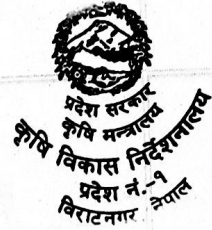 प्रदेश सरकार
कृषि मन्त्रालय
कृषि विकास निर्देशनालय
प्रदेश नं.-१
विराटनगर नेपाल